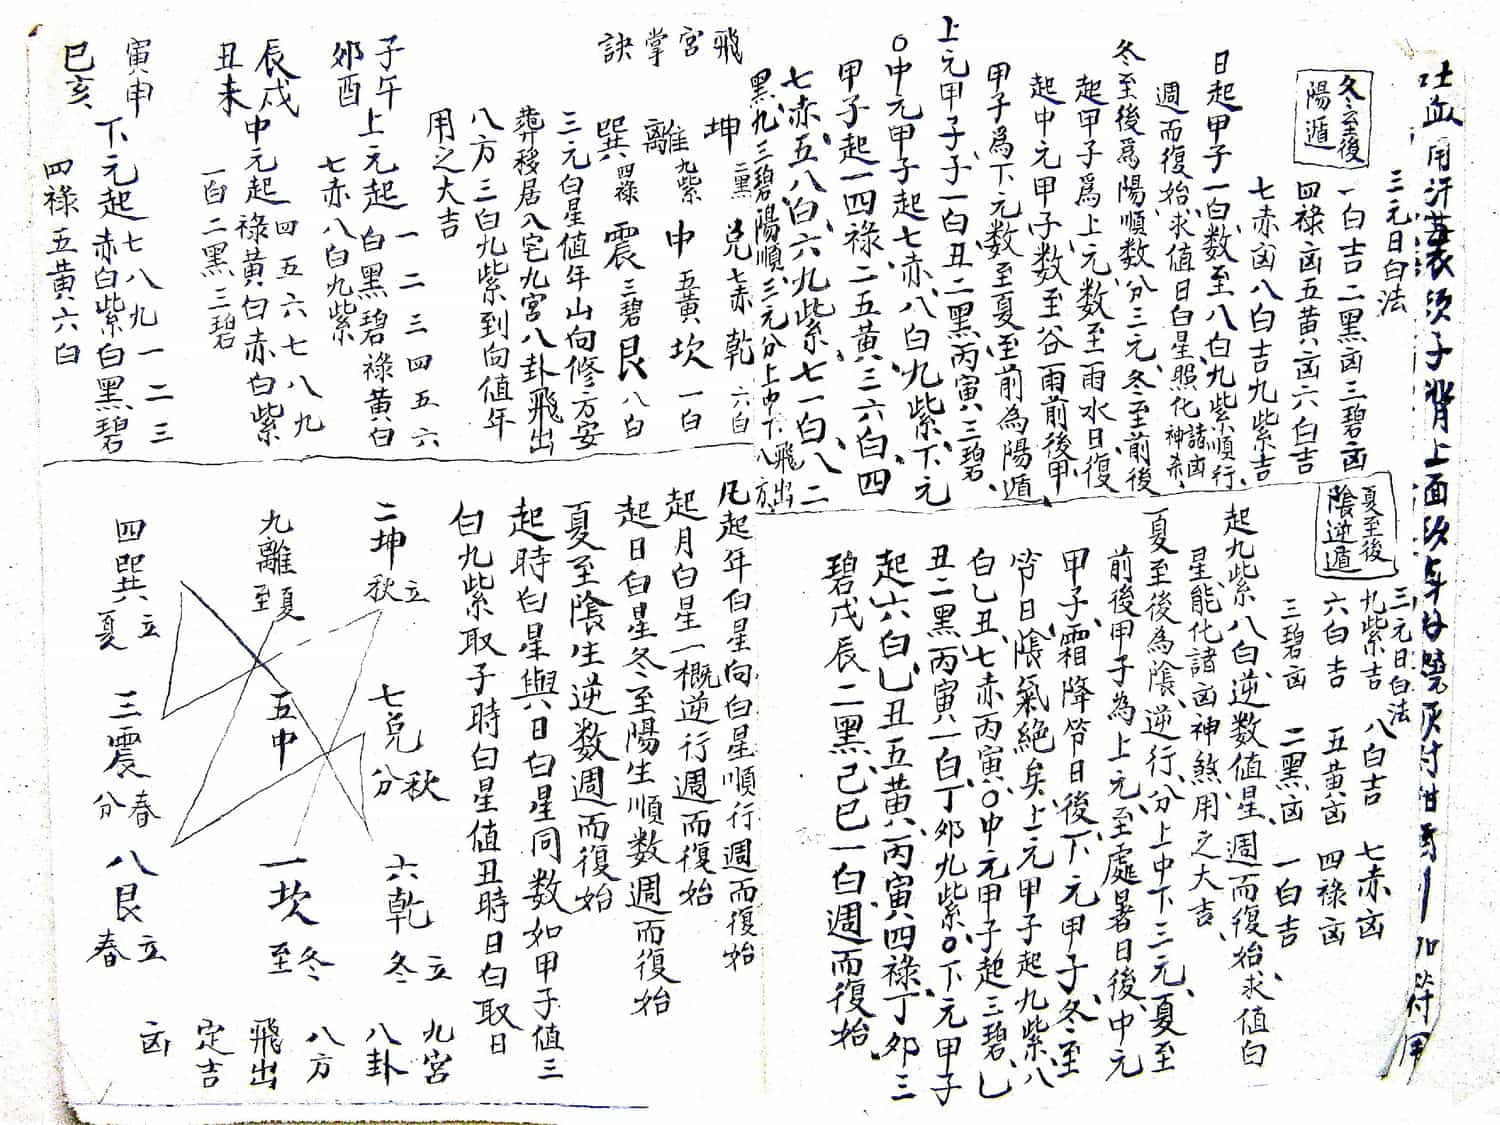 冬至後
陽遁
三元日白法
一白吉二黑凶三碧凶
四祿凶五黃凶六白吉
七赤凶八白吉九紫吉
日起甲子一白數至八白九紫順行
週而復始求值日白星照化諸凶神杀
冬至後爲陽順數分三元冬至前後
起甲子爲上元數至雨水日復
起中元甲子數至谷雨前後甲
甲子爲下元數至夏至前為陽遁
上元甲子子一白丑二黑丙寅三碧
○中元甲子起七赤八白九紫下元
甲子起一四祿二五黃三六白四
七赤五八白六九紫七一白八二
黑九三碧陽順三元分上中下飛出八方
飛宮掌訣
坤二黑 兌七赤 乾六白
離九紫 中五黃 坎一白
巽四祿 震三碧 艮八白
三元白星值年山向修方安
葬移居入宅九宮八卦飛出
八方三白九紫到向值年
用之大吉
子午
卯酉
上元起一二三四五六
白黑碧祿黃白
七赤八白九紫
辰戌
丑未
中元起四五六七八九
祿黃白赤白紫
一白二黑三碧
寅申
巳亥
下元起七八九一二三
赤白紫白黑碧
四祿五黃六白
夏至後
陰逆遁
三元日白法
九紫吉 八白吉 七赤凶
六白吉 五黃凶 四祿凶
三碧凶 二黑凶 一白吉
起九紫八白逆數值星週而復始求值白
星能化諸凶神煞用之大吉
夏至後為陰逆行分上中下三元夏至
前後甲子為上元至處暑日後中元
甲子霜降節日後下元甲子冬至
節日陰氣絕矣上元甲子起九紫八
白乙丑七赤丙寅○中元甲子起三碧乙
丑二黑丙寅一白丁卯九紫○下元甲子
起六白乙丑五黃丙寅四祿丁卯三
碧戊辰二黑己巳一白週而復始
凡起年白星向白星順行週而復始
起月白星一概逆行週而復始
起日白星冬至陽生順數週而復始
夏至陰生逆數週而復始
起時白星與日白星同數如甲子值三
白九紫取子時白星值丑時日白取日
二坤立秋
七兌秋分
六乾立冬
九離夏至
五中
一坎冬至
四巽立夏
三震春分
八艮立春
九宮
八卦
八方
飛出
定吉
凶